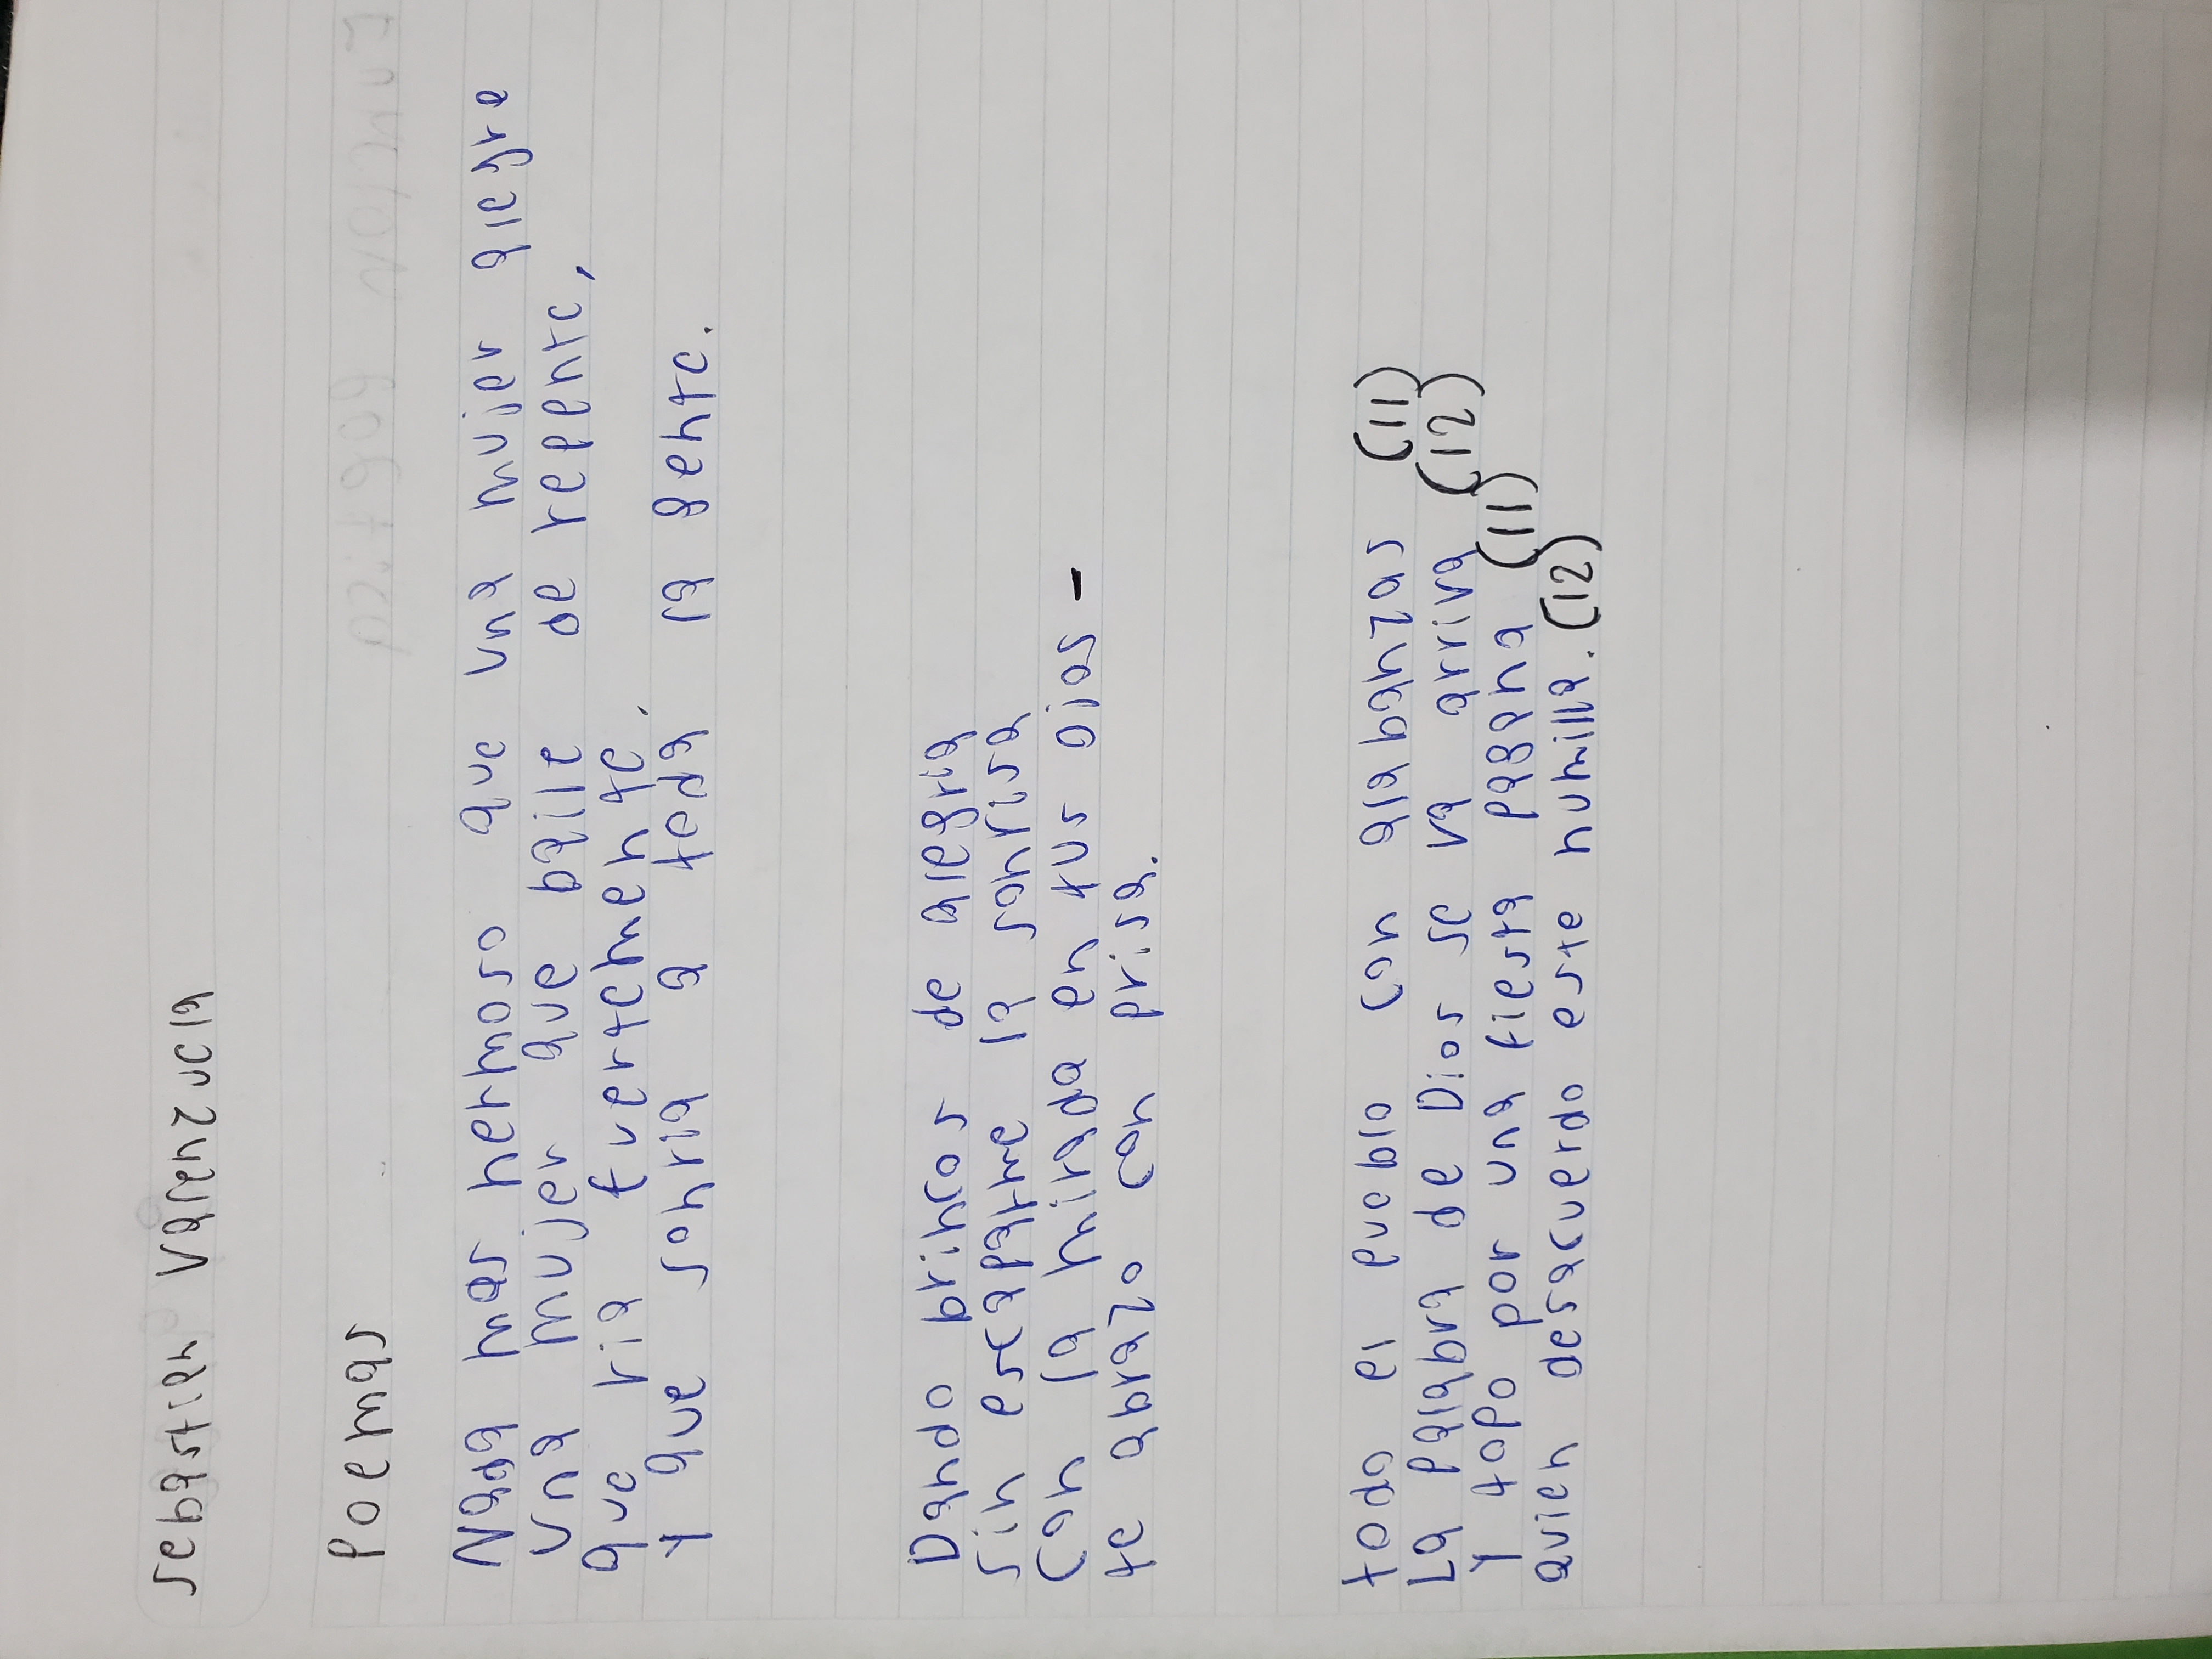 Sebastian Valenzuela
Poemas
Nada mas hermoso que una mujer alegre
una mujer que baile de repente,
que ria fuertemente,
Y que sonria a toda la gente.
Dando brincos de alegria
sin escaparme la sonrisa
Con la mirada en tus ojos -
te abrazo con prisa.
todo el pueblo con alabanzas (11)
La palabra de Dios se va arriva (12)
Y todo por una fiesta pagana (11)
quien desacuerdo este humilla. (12)